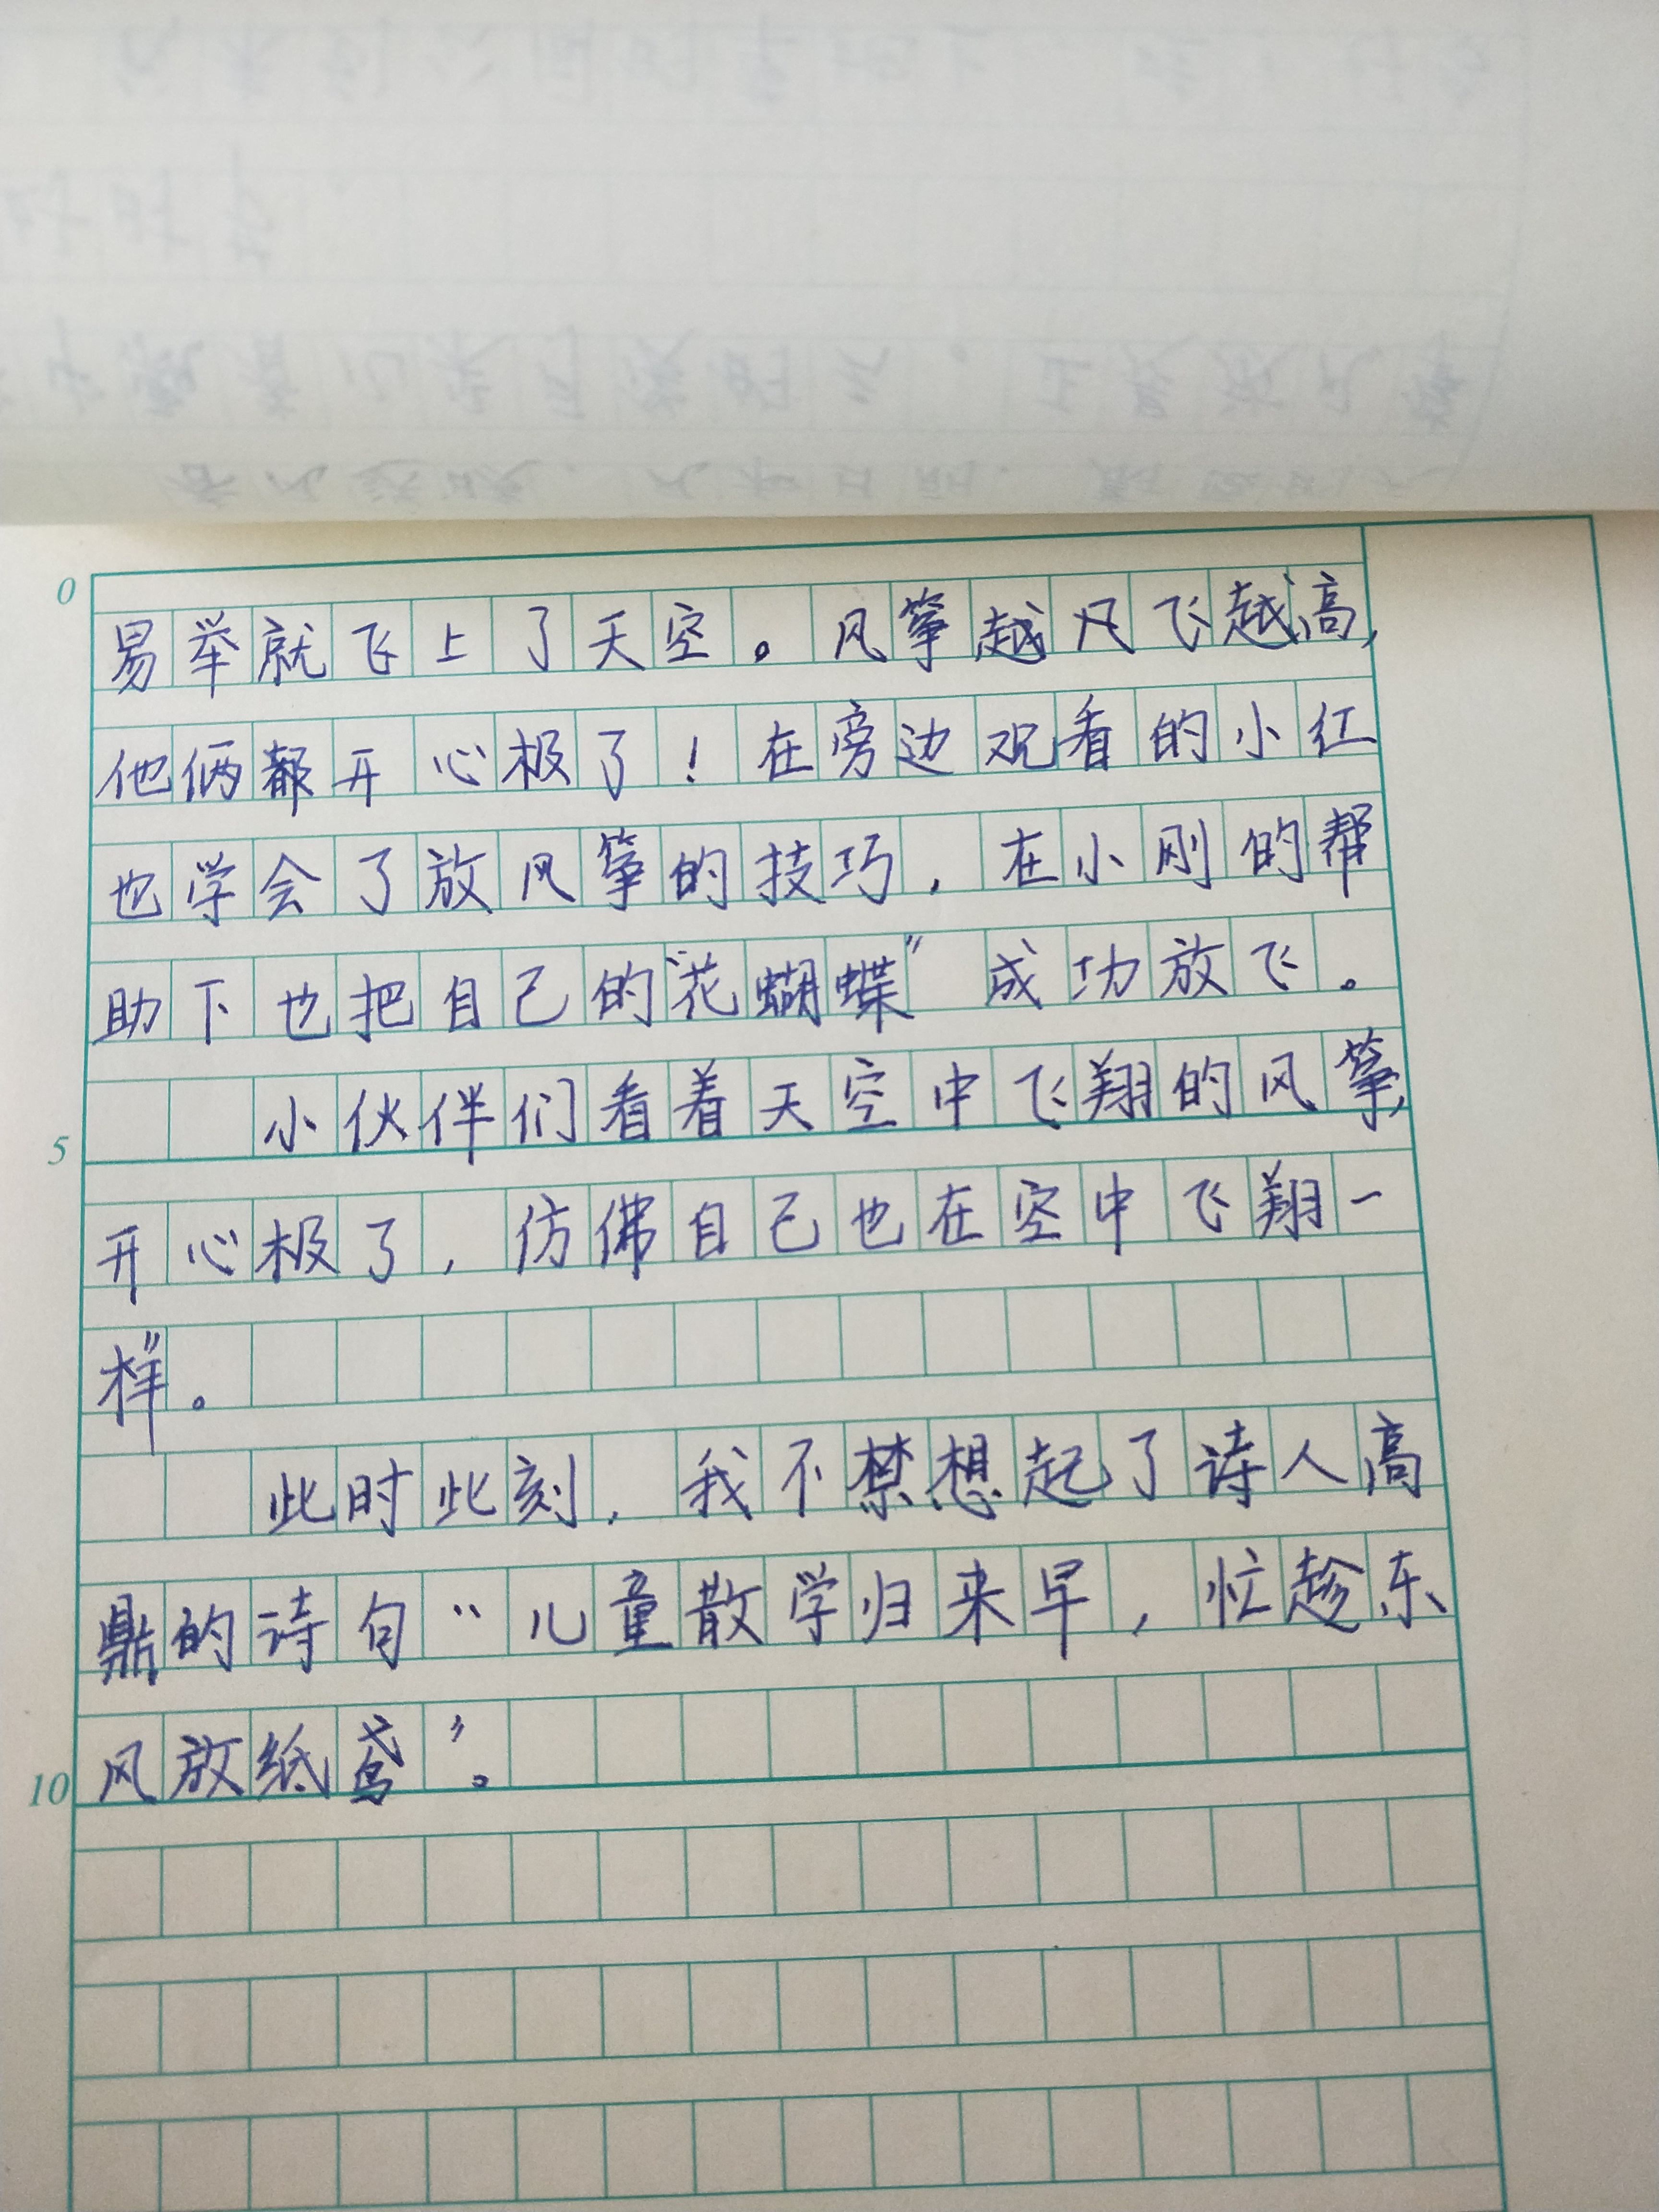 0
易举就飞上了天空。风筝越风飞越高,
他俩都开心极了！在旁边观看的小红
也学会了放风筝的技巧，在小刚的帮
助下也把自己的“花蝴蝶”成功放飞。
小伙伴们看着天空中飞翔的风筝,
5
开心极了，仿佛自己也在空中飞翔一
样”。
此时此刻，我不禁想起了诗人高
鼎的诗句“儿童散学归来早，忙趁东
风放纸鸢”。
10